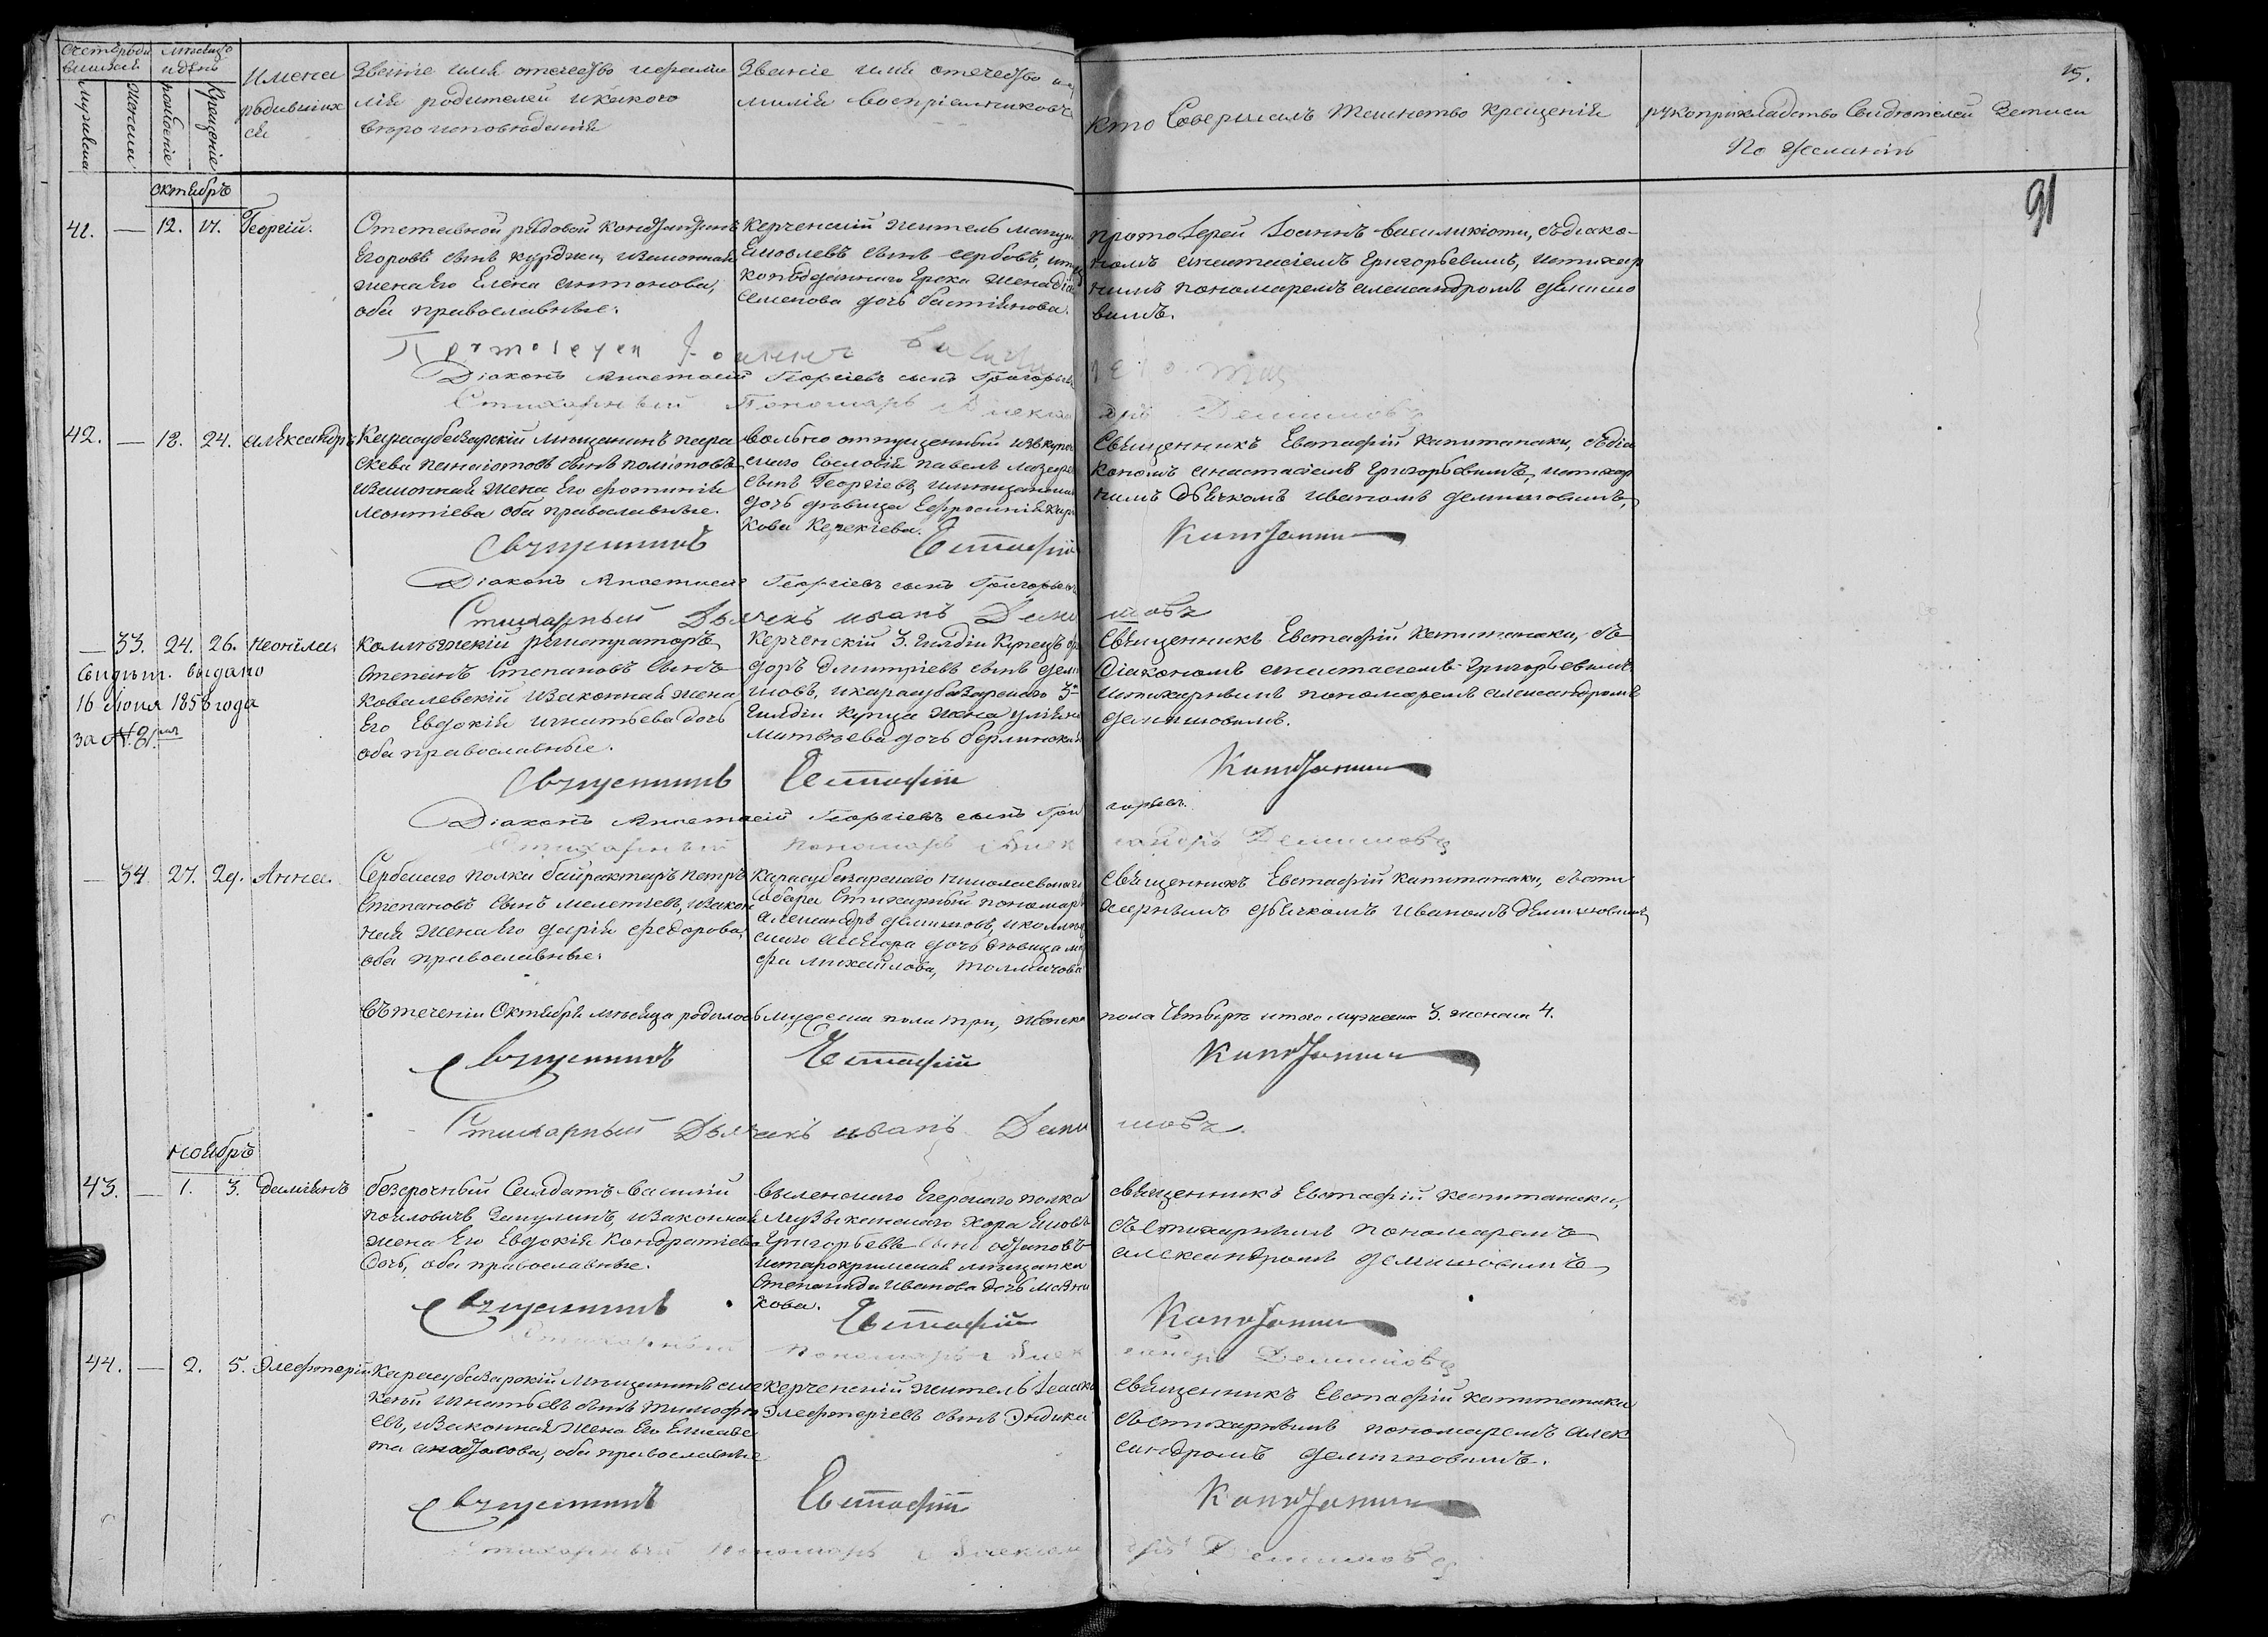 Счетъ роди
вшихся
Мужеска
Женска
мѣсяцъ
и день
рожденіе
Крещеніе
Имена
родивших
ся
Званіе имя отечество и фами
лія родителей и какого
вѣроисповѣданія
Званіе имя отечество и фа
милія воспріемниковъ
Кто Совершалъ таинство Крещенія
рукоприкладство Свидѣтелей Записи
По Желанію
91
октябрь
41. — 12. 17. Георгій.
Отставной рядовой Константинъ
Егоровъ сынъ Курджи, изаконная
жена Его Елена Антонова,
оба православные.
Керченскій житель
Яковлевъ сынъ сербовъ,
грека жена
Семенова дочь бастіянова.
протоіерей Іоаннъ Василикіоти, съ діако-
номъ Анастасіемъ Григорьевымъ, истихар
нымъ пономаремъ Александромъ Демишо
вымъ.
Протоіерей Іоаннъ Василикіоти
Діаконъ Анастасій Георгіевъ сынъ Григорьевъ
Стихарный Пономарь Александръ Демишовъ
42. — 18. 24. Александръ
Карасубазарскій мѣщанинъ пара
скева панаіотовъ сынъ политовъ
изаконная жена Его фотинія
Леонтіева оба православные.
вольно отпущенный изъ купе
скаго Сословія павелъ
сынъ Георгіевъ,
дочь дѣвица Ефросинія
кова Керекіева.
Священникъ Евстафій Капитанаки, съ діа
кономъ Анастасіемъ Григорьевымъ, истихар
нымъ дьячкомъ Иваномъ Демишовымъ,
Священникъ Евстафій Капитанаки
Діаконъ Анастасій Георгіевъ сынъ Григорьевъ
Стихарный Дьячекъ иванъ Демишовъ
— 33. 24. 26. Неонила.
Свидѣт. выдано
16 Іюня 1858 года
за № 81.
Коллежскій регистраторъ
Степанъ Степановъ Сынъ
Ковалевскій изаконная жена
Его Евдокія Игнатьева дочь
оба православные.
Керченскій 3. гилдіи Купецъ фео
доръ Дмитріевъ сынъ деми
шовъ, и карасубазарскаго 3й
гилдіи купца жена
Матвѣева дочь берлинская
Священникъ Евстафій Капитанаки, съ
Діакономъ Анастасіемъ Григорьевымъ
истихарнымъ пономаремъ Александромъ
Демишовымъ.
Священникъ Евстафій Капитанаки
Діаконъ Анастасій Георгіевъ сынъ Григорьевъ.
Стихарный пономарь Александръ Демишовъ
— 34 27. 29. Анна.
Сербскаго полка байрактаръ петръ
Степановъ Сынъ мелетіевъ, изакон
ная жена Его Дарія федорова,
оба православные.
Карасубазарскаго николаевскаго
Собора Стихарный пономарь
Александръ Демишовъ, и коллеж
скаго дочь дѣвица
михайлова, толмачова
Священникъ Евстафій Капитанаки, съ сти
харнымъ дьячкомъ Иваномъ Демишовымъ,
Въ теченіи Октября мѣсяца родилось мужеска пола три, женска пола Четыре итого мужеска 3. женска 4.
Священникъ Евстафій Капитанаки
Стихарный Дьячекъ иванъ Демишовъ.
ноябрь
43. — 1. 3. Даміянъ
безсрочный Солдатъ Василій
изаконная
жена Его Евдокія Кондратіева
дочь, оба православные.
виленскаго Егерскаго полка
музыканскаго хора Яковъ
Григорьевъ Сынъ
истарокримская мѣщанка
Степанида Иванова дочь
кова.
Священникъ Евстафій Капитанаки,
съ Стихарнымъ пономаремъ
Александромъ Демишовымъ
Священникъ Евстафій Капитанаки
Стихарный пономарь Александръ Демишовъ
44. — 2. 5. Элефтерій.
Карасубазарскій мѣщанинъ
Игнатьевъ сынъ тимофе
евъ, изаконная жена Его Елисаве
та Анастасова, оба православные
Керченскій житель Іоаннъ
Элефтеріевъ сынъ Эндика
Священникъ Евстафій Капитанаки
съ Стихарнымъ пономаремъ Алек
сандромъ Демишовымъ.
Священникъ Евстафій Капитанаки
Стихарный пономарь Александръ Демишовъ